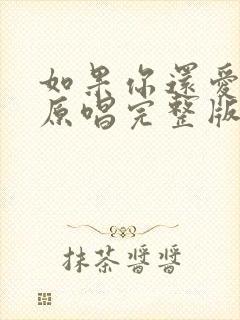 如果你還愛
原唱完整版
抹茶醬醬